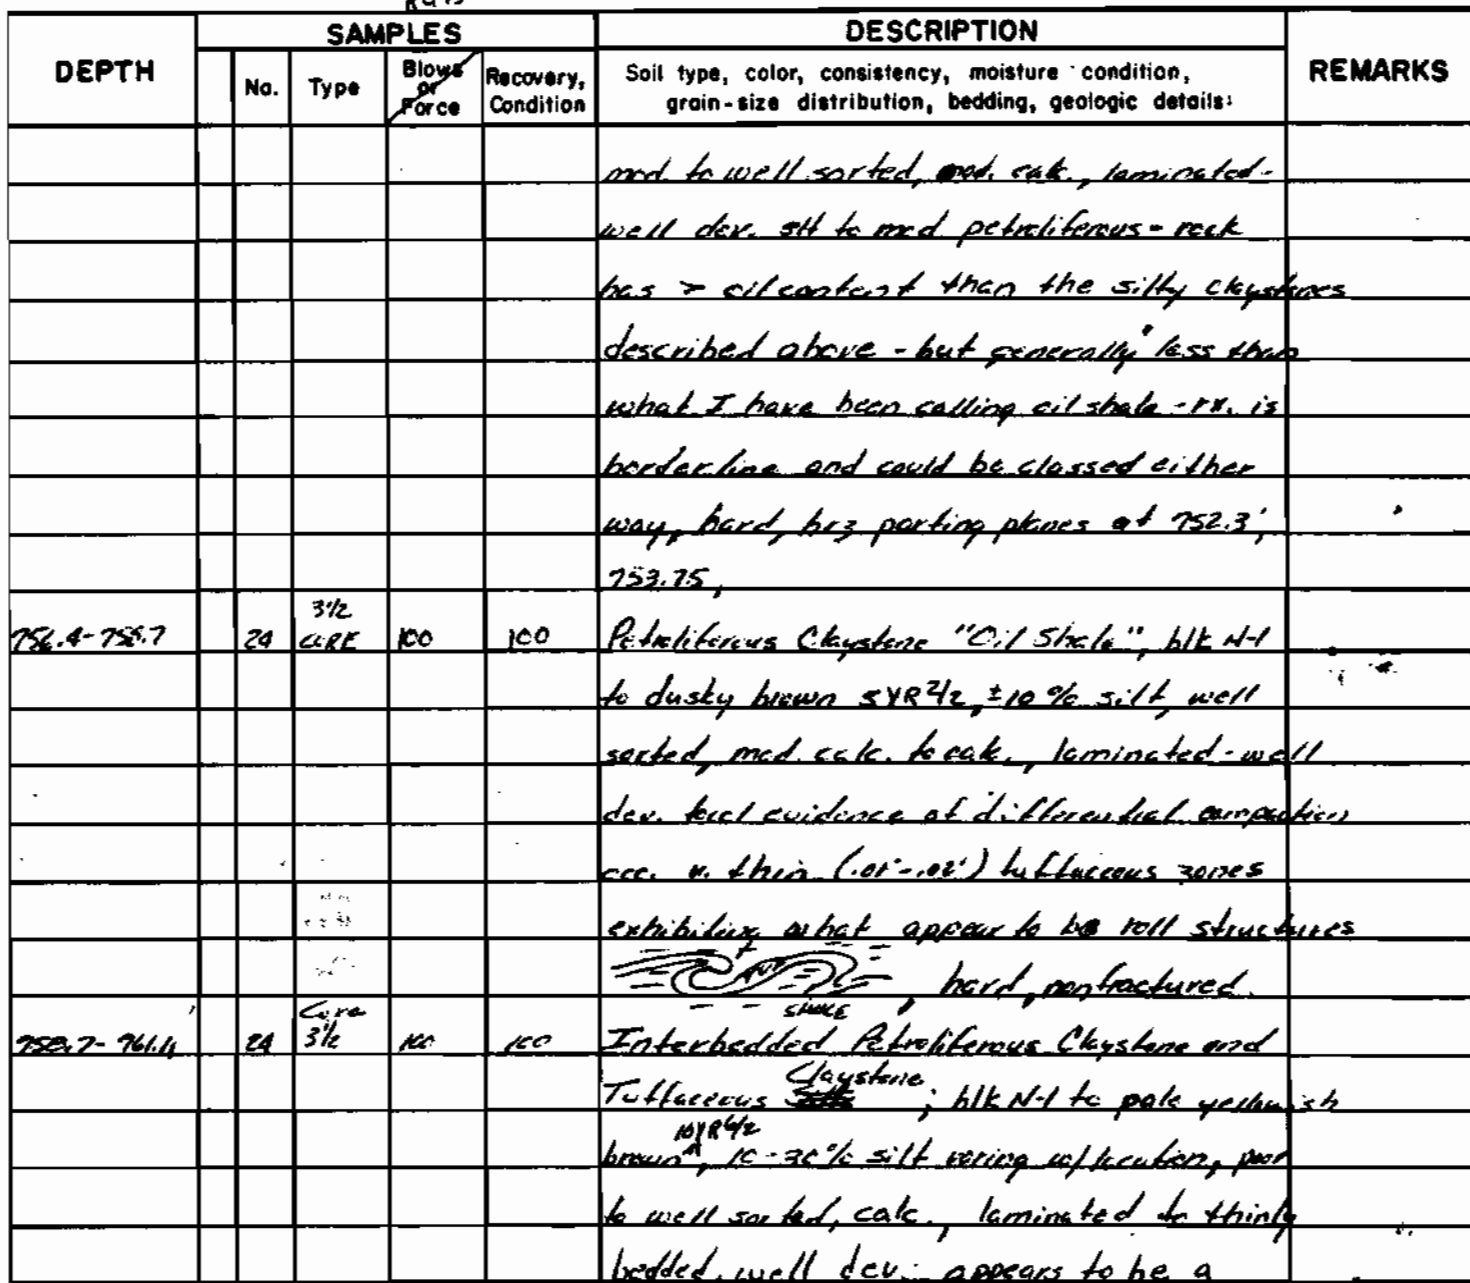 SAMPLES DESCRIPTION
DEPTH No. Type Blows or Force Recovery, Condition Soil type, color, consistency, moisture condition, grain-size distribution, bedding, geologic details: REMARKS
mod. to well sorted, mod. calc., laminated-
well dev. slt to mod petroliferous - rock
has > oil content than the silty claystones
described above - but generally less than
what I have been calling oil shale - rx. is
borderline and could be classed either
way, hard, hrz parting planes at 752.3',
753.75,
756.4-758.7 24 3 1/2 CORE 100 100 Petroliferous Claystone "Oil Shale", blk N-1
to dusky brown 5YR 2/2, ±10% silt, well
sorted, mod. calc. to calc., laminated-well
dev. local evidence of differential compaction
occ. v. thin (.01'-.02') tuffaceous zones
exhibiting what appear to be roll structures
, hard, nonfractured.
758.7-761.4 24 Core 3 1/2 100 100 Interbedded Petroliferous Claystone and
Tuffaceous Claystone; blk N-1 to pale yellowish
brown 10YR 6/2, 10-30% silt varing w/location, poor
to well sorted, calc., laminated to thinly
bedded, well dev. appears to be a